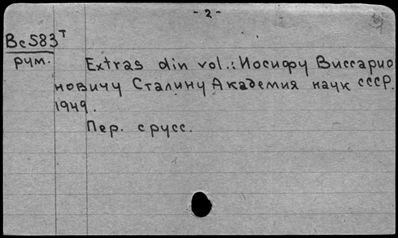 - 2 -
Вс583т
рум.
Extras din vol.: Иосифу Виссарио
новичу Сталину Академия наук СССР.
1949.
Пер. с русс.